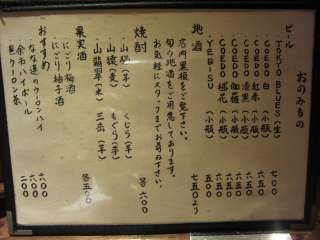 おのみもの
ビール
TOKYO BLUES（生） 七〇〇
COEDO 紅赤（小瓶） 六五〇
COEDO 伽羅（小瓶） 六五〇
COEDO 漆黒（小瓶） 六五〇
COEDO 瑠璃（小瓶） 六五〇
YEBISU（小瓶） 五〇〇
地酒 七五〇より
店内黒板をご覧下さい。
旬の地酒をご用意しております。
お気軽にスタッフまでお尋ね下さい。
焼酎 各六〇〇
山ねこ（芋） くじら（芋）
山猿（麦） もぐら（芋）
山翡翠（米） 三岳（芋）
果実酒 各五五〇
にごり梅酒
にごり柚子酒
おすすめ
なな蓮のウーロンハイ 六〇〇
余市ハイボール 六〇〇
黒ウーロン茶 二〇〇